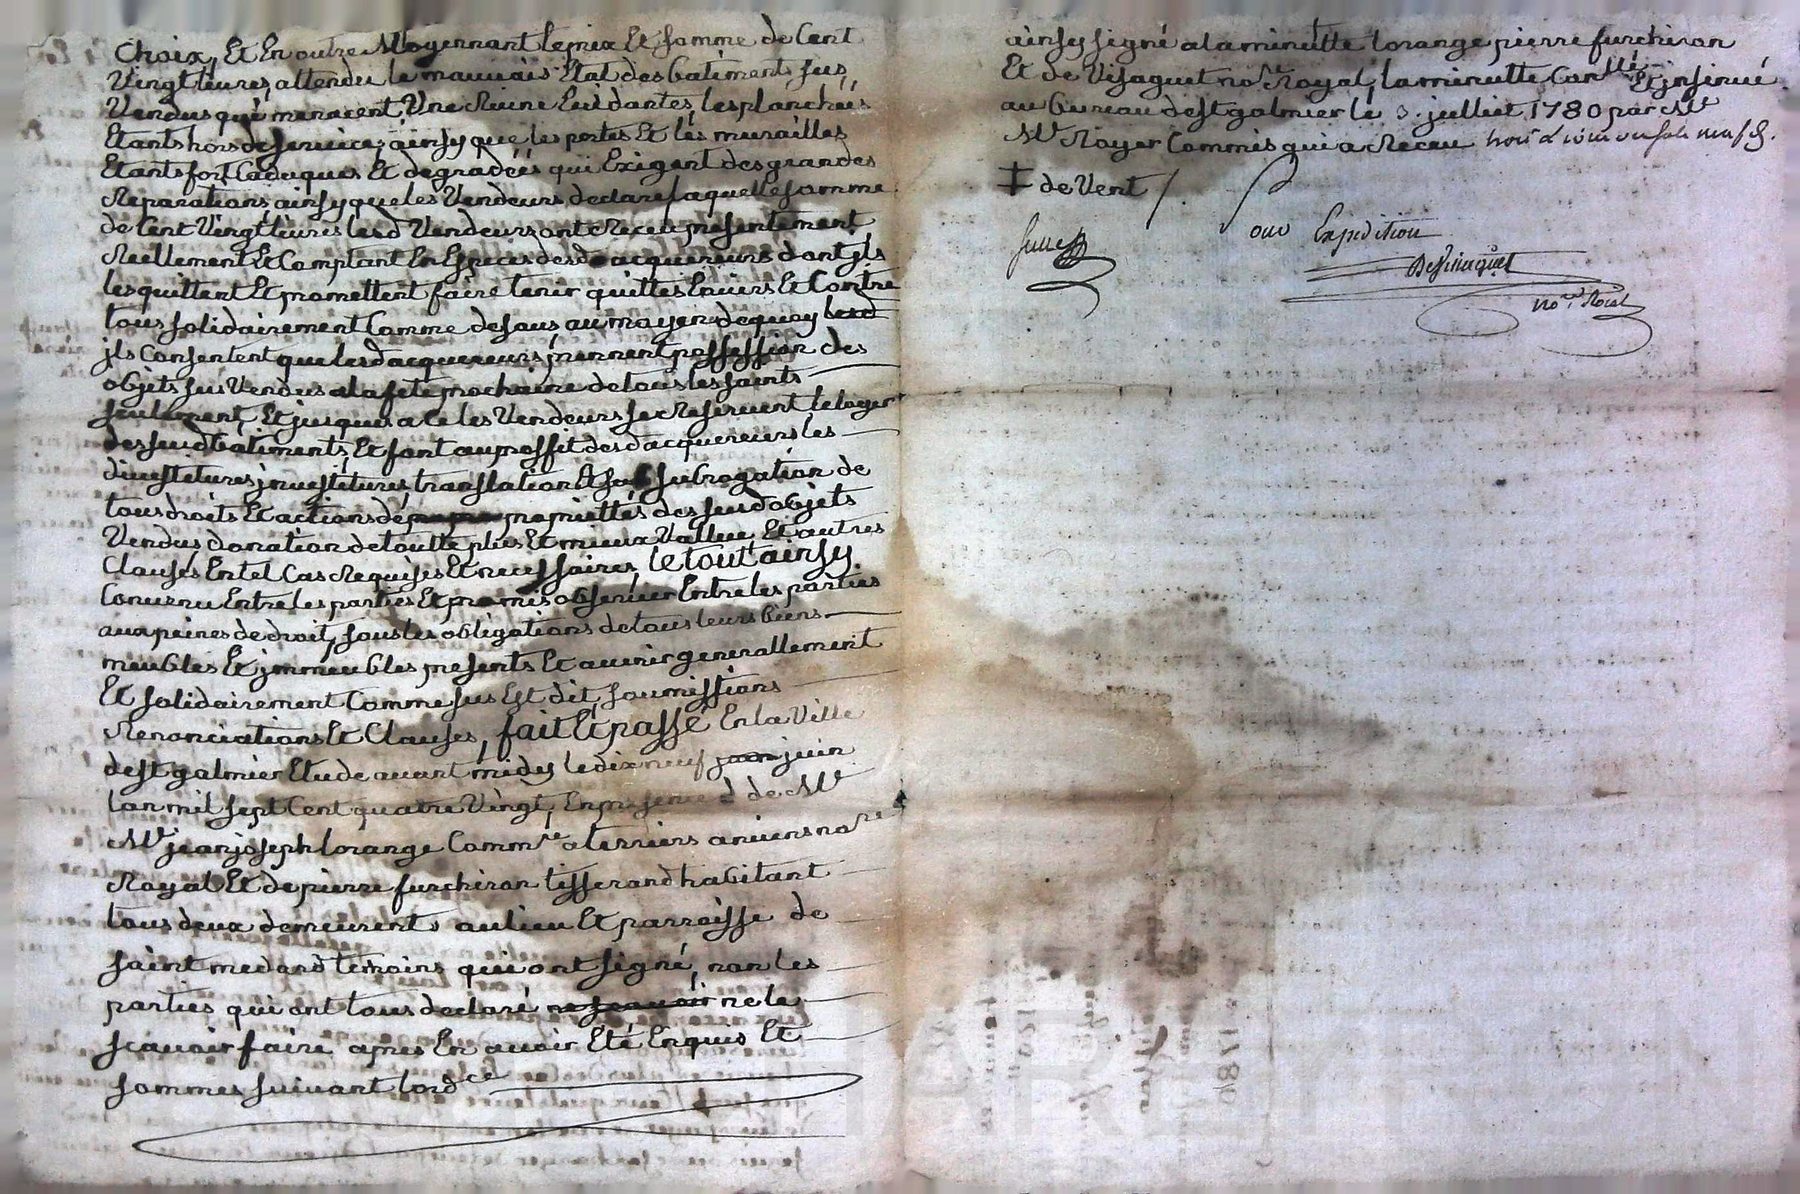 Choix, Et En outre Moyennant le prix Et somme de Cent
Vingt livres, attendu le mauvais Etat des batiments sus
Vendus qui menacent Une Ruine Evidantes, les planchés
Etants hors de service, ainsy que les portes Et les murailles
Etants fort Caduques Et degradéés qui Exigent des grandes
Reparations ainsy que les Vendeurs declare laquelle somme
de Cent Vingt livres lesd Vendeurs ont Receu presentement
Reellement Et Comptant En Especes desd acquereurs dont jls
les quittent Et promettent faire tenir quittes Envers Et Contre
tous solidairement Comme dessus, au moyen de quoy lesd
jls Consentent que lesd acquereurs prennent possession des
objets sus Vendus a la fete prochaine de tous les saints
seulement, Et jusques a ce les Vendeurs se Reservent le loyer
des susd batiments, Et font au proffit desd acquereurs les
divestitures jnvestitures translation Et subrogation de
tous droits Et actions de propriettés des susd objets
Vendus donation de toutte plus Et mieux Vallue Et autres
Clauses En tel Cas Requises Et necessaires, le tout ainsy
Convenu Entre les parties Et promis observer Entre les parties
aux peines de droit, sous les obligations de tous leurs biens
meubles Et jmmeubles presents Et avenir generallement
Et solidairement Comme sus Est dit, soumissions
Renonciations Et Clauses, fait Et passé En la Ville
de st galmier Etude avant midy le dix neuf juin
l'an mil sept Cent quatre Vingt, En presence de Me
Mr jean joseph lorange Commre a terriers anciens nore
Royal Et de pierre furchiron tisserand habitant
tous deux demeurents au lieu Et parroisse de
saint medard temoins qui ont signé, non les
parties qui ont tous declaré ne scavoir ne le
scavoir faire apres En avoir Eté Enquis Et
sommes suivant lordce
ainsy signé a la minutte lorange pierre furchiron
Et de Visaguet nore Royal, la minutte Conllé Et jnsinué
au bureau de st galmier le 3. juillet 1780 par Mr
Mr Royer Commis qui a Receu
‡ de Vent
our Expedition
nore Roial
1780